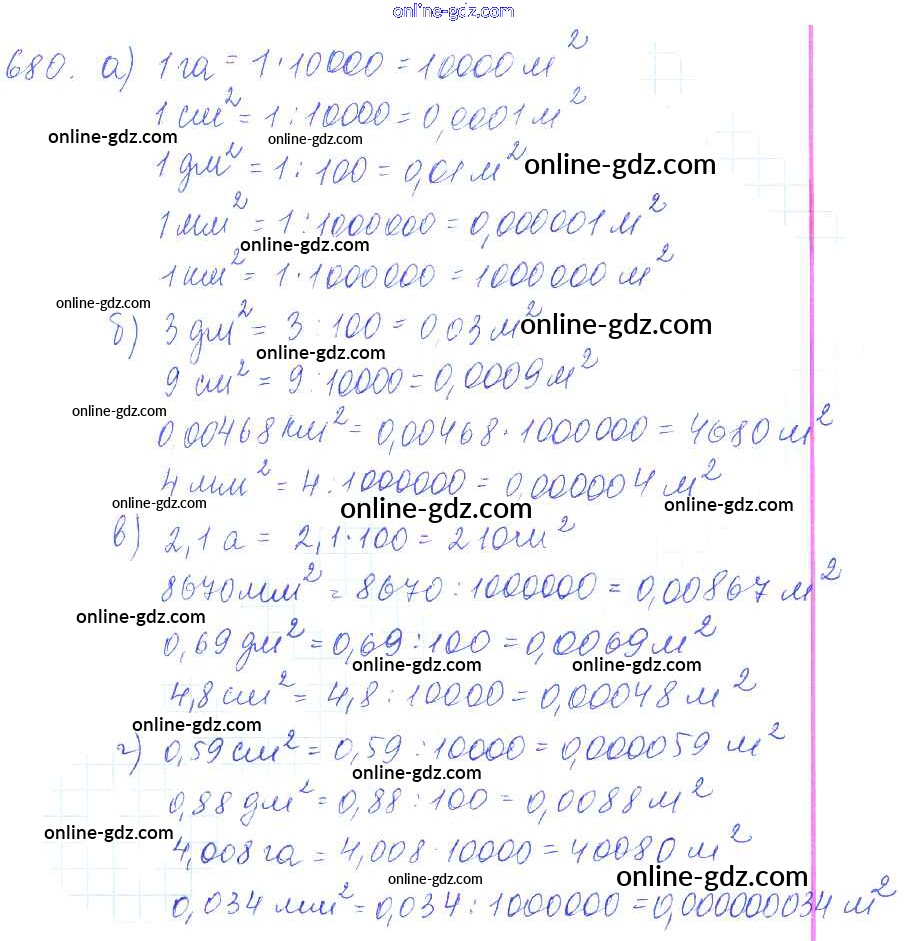 online-gdz.com
680. а) 1 га = 1·10000 = 10000 м²
1 см² = 1:10000 = 0,0001 м²
online-gdz.com online-gdz.com
1 дм² = 1:100 = 0,01 м² online-gdz.com
1 мм² = 1:1000000 = 0,000001 м²
online-gdz.com
1 км² = 1·1000000 = 1000000 м²
online-gdz.com
б) 3 дм² = 3:100 = 0,03 м² online-gdz.com
online-gdz.com
9 см² = 9:10000 = 0,0009 м²
online-gdz.com
0,00468 км² = 0,00468·1000000 = 4680 м²
4 мм² = 4:1000000 = 0,000004 м²
online-gdz.com online-gdz.com online-gdz.com
в) 2,1 а = 2,1·100 = 210 м²
8670 мм² = 8670:1000000 = 0,00867 м²
online-gdz.com
0,69 дм² = 0,69:100 = 0,0069 м²
online-gdz.com online-gdz.com
4,8 см² = 4,8:10000 = 0,00048 м²
online-gdz.com
г) 0,59 см² = 0,59:10000 = 0,000059 м²
online-gdz.com
0,88 дм² = 0,88:100 = 0,0088 м²
online-gdz.com
4,008 га = 4,008·10000 = 40080 м²
online-gdz.com online-gdz.com
0,034 мм² = 0,034:1000000 = 0,000000034 м²